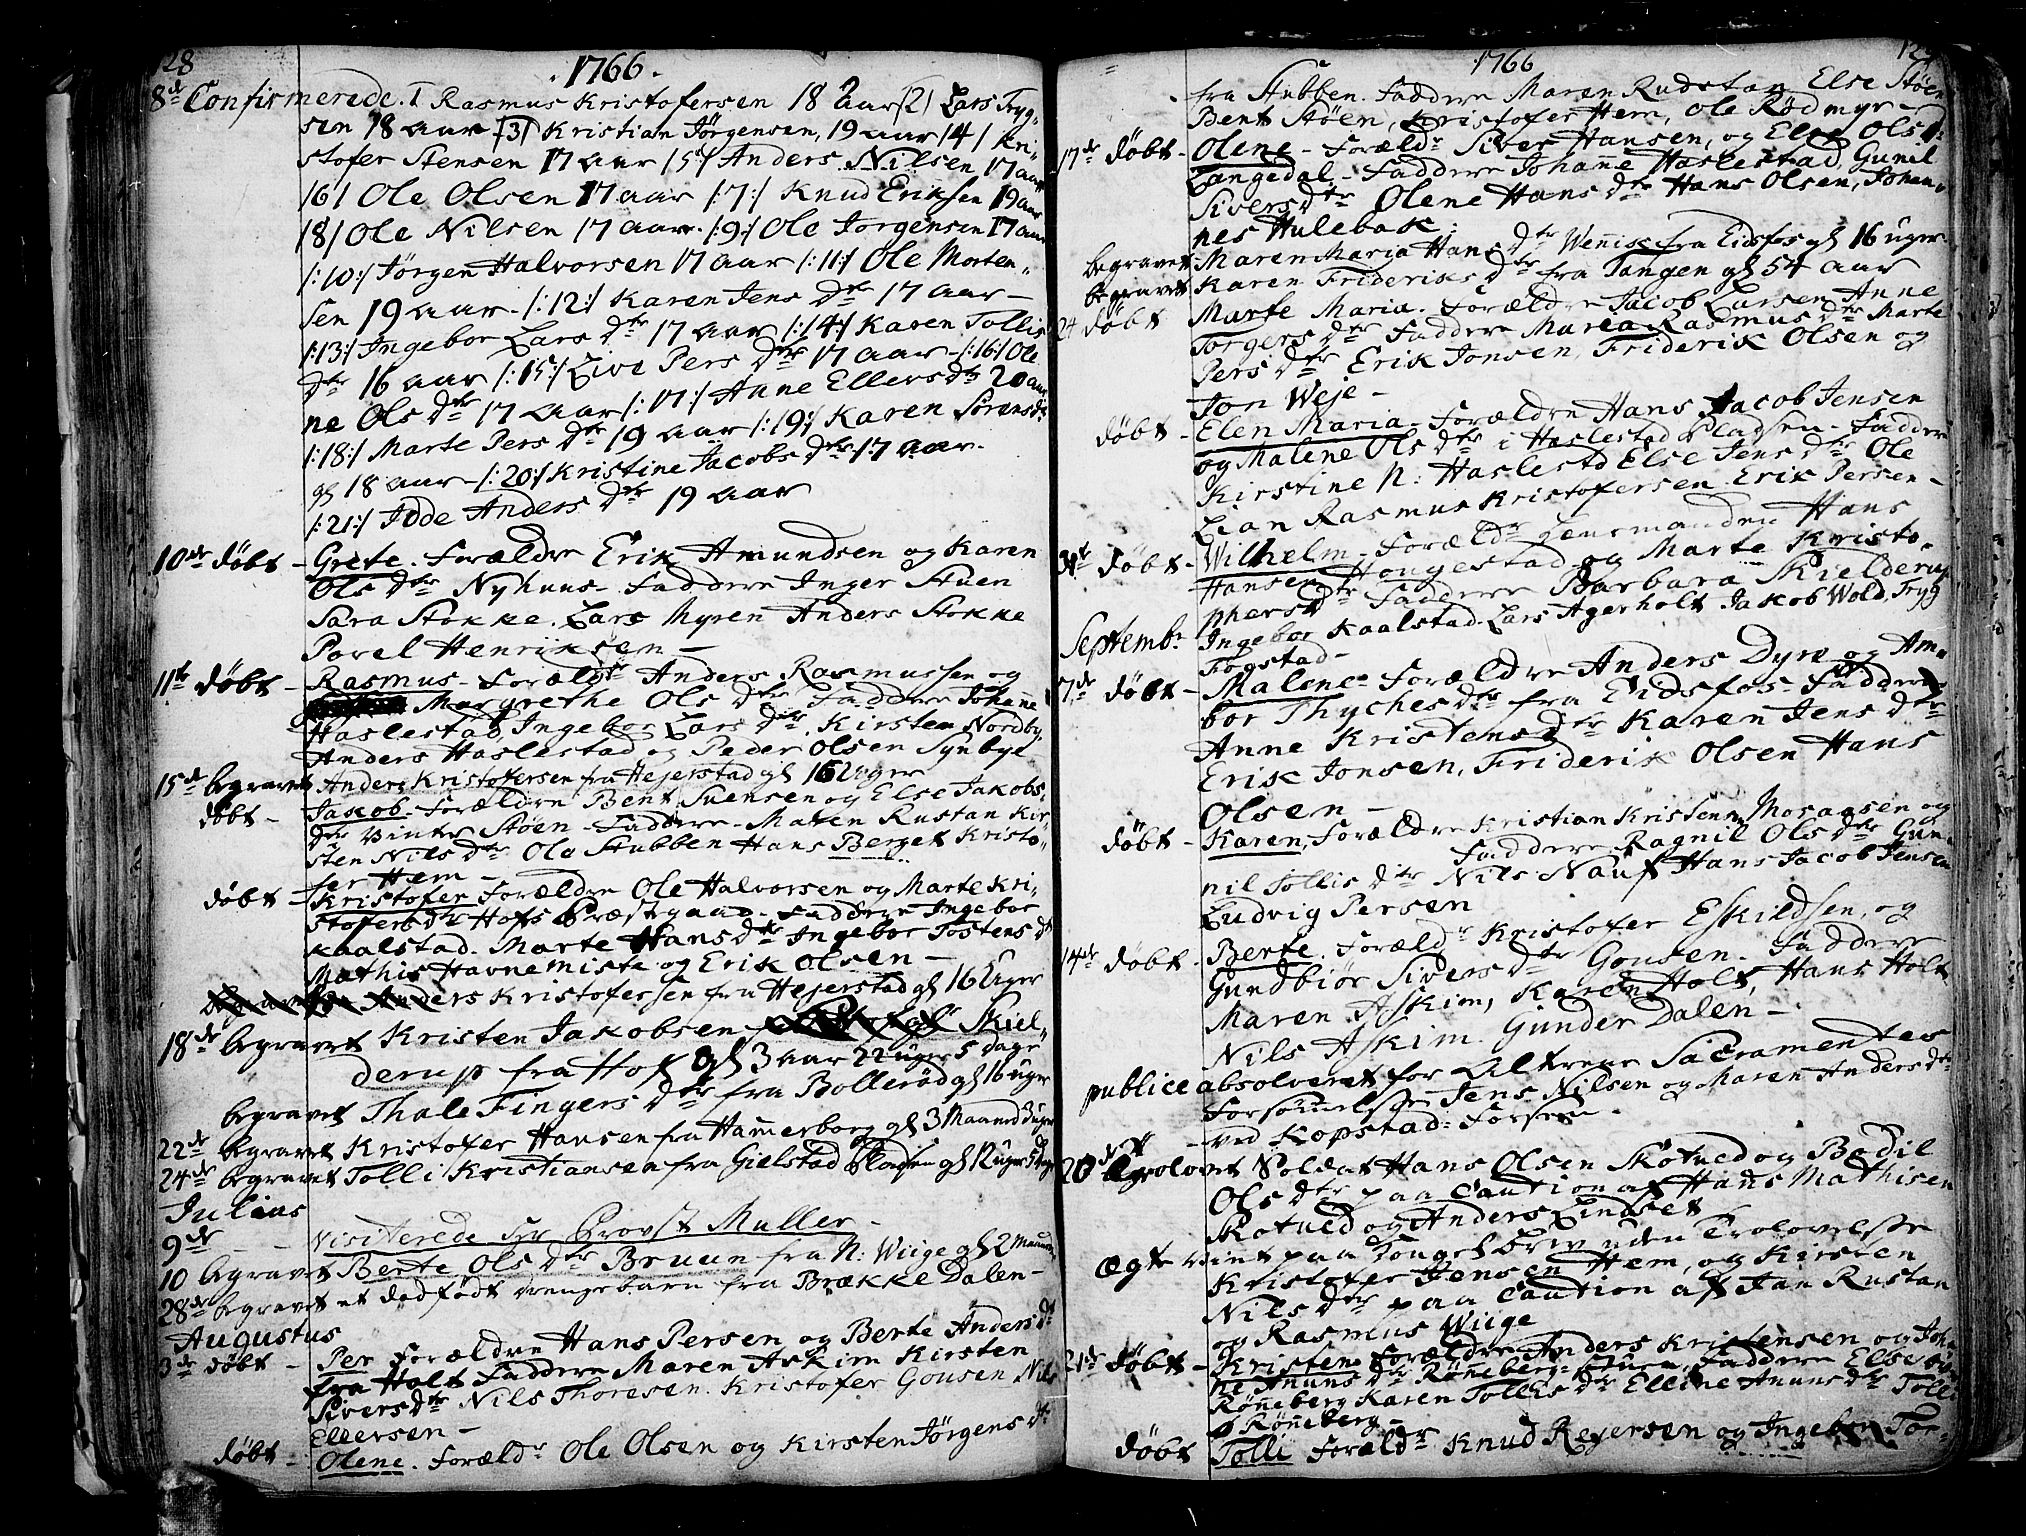 128
1766.
8de Confirmerede. 1 Rasmus Kristofersen 18 aar (2) Lars Tryg-
sen 18 aar (3) Kristian Jörgensen, 19 aar /4/ Kri-
stofer Stensen 17 aar /5/ Anders Nilsen 17 aar
/6/ Ole Olsen 17 aar /:7:/ Knud Eriksen 19 aar
/8/ Ole Nilsen 17 aar. /:9:/ Ole Jorgensen 17 aar
/:10:/ Jörgen Halvorsen 17 aar /:11:/ Ole Morten-
sen 19 aar. /:12:/ Karen Jens Dtr 17 aar –
/:13:/ Ingebor Lars Dtr 17 aar /:14:/ Karen Tollis
Dtr 16 aar /:15:/ Live Pers Dtr 17 aar - /:16:/ Ole
ne Ols Dtr 17 aar /:17:/ Anne Ellers Dtr 20 aar
/:18:/ Marte Pers Dtr 19 aar /:19:/ Karen Sörens Dtr
gl 18 aar - /:20:/ Kristine Jacobs Dtr 17 aar.
/:21:/ Idde Anders Dtr 19 aar
10de döbt - Grete. Forældre Erik Amundsen og Karen
Ols Dtr Nyhuus - Faddere Inger Stuen
Sara Stokke. Lars Myren Anders Stokke
Povel Henriksen –
11te döbt - Rasmus - Foræld. Anders Rasmussen og
Margrethe Ols Dtr Faddere Johanne
Haslestad Ingebor Lars Dtr. Kirsten Nordby,
Anders Haslestad og Peder Olsen Synbye
15de begravet Anders Kristofersen fra Hejerstad gl 16 Uger
döbt - Jakob - Forældre Bent Suensen og Else Jakobs-
Dtr Vinter Stöen - Faddere - Maren Rustan Kir-
sten Nils Dtr Ole Stubben Hans Berget Kristo-
fer Hem –
döbt - Kristofer Forældre Ole Halvorsen og Marte Kri-
stofers Dtr Hofs Præstgaard. Faddere Ingebor
Kaalstad. Marte Hans Dtr Ingebor Tostens Dr
Mathis Havnemiste og Erik Olsen –
Anders Kristofersen fra Hejerstad gl 16 Uger
18de begravet Kristen Jakobsen Skiel-
derup fra Hof gl 3 aar 22 uger 5 dage
begravet Thale Fingers Dtr fra Bolleröd gl 16 uger
22de begravet Kristofer Hansen fra Hammerborg gl 3 Maaned 3 uger
24de begravet Tolli Kristiansen fra Gielstad Pladsen gl 12 uger 5 dage
Julius
9de - - Visiterede Hr Provst Muller –
10 begravet Berte Ols Dtr Bruun fra N: Wiige gl 2 Maaneder
28de begravet et dödfödt drengebarn fra Brække Dalen –
Augustus
3de döbt - Per Forældre Hans Persen og Berte Anders Dr
fra Holt Faddere Maren Askim Kirsten
Sivers Dtr Nils Thoresen. Kristofer Gousen Nils
Ellersen –
döbt - Olene. Foræld. Ole Olsen og Kirsten Jörgens Dr
1766
129
fra Stubben. Faddere Maren Rudstan Else Stöen
Bent Stöen, Kristofer Hem, Ole Rödmyr –
17de döbt - Olene - Foræld. Siver Hansen, og Else Ols D:
Langedal - Faddere Johane Haslestad, Gunil
Sivers Dtr Olene Hans Dtr Hans Olsen, Johan-
nes Hulebak.
begravet Maren Maria Hans Dtr Wenise fra Eidsfos gl 16 uger
begravet Karen Frideriks Dtr fra Tangen gl 54 aar
24 döbt Marte Maria. Forældre Jacob Larsen Anne
Torgers Dtr Faddere Maria Rasmus Dtr Marte
Pers Dtr Erik Jonsen, Friderik Olsen og
Jon Weje –
döbt - Elen Maria - Forældre Hans Jacob Jensen
og Malene Ols Dtr i Haslestad Pladsen - Faddere
Kirstine N: Haslestd Else Jens Dtr Ole
Lian Rasmus Kristofersen Erik Persen –
31te döbt - Wilhelm - Foræld. Lensmanden Hans
Hansen Hougestad og Marte Kristo-
phers Dtr Faddere Barbara Skielderup
Septembr Ingebor Kaalstad. Lars Agerholt Jakob Wold, Tryg
Fogstad –
7de döbt - Malene - Forældre Anders Dyre og Am-
bor Thyches Dtr fra Eidsfos - Faddere
Anne Kristens Dtr Karen Jens Dtr
Erik Jonsen, Friderik Olsen Hans
Olsen –
döbt - Karen, Forældre Kristian Kristensen Moraasen og
Faddere Ragnil Ols Dtr Gun-
nil Tollis Dtr Nils Nauf Hans Jacob Jensen
Ludvig Persen
14de döbt - Berte. Foræld. Kristofer Eskildsen, og
Gundbiör Sivers Dtr Gousen. Faddere
Maren Askim, Karen Holt, Hans Holt
Nils Askim. Gunder Dalen –
publice absolveret for Alterens Sacramentes
Forsömmelse Jens Nilsen og Maren Anders Dtr
ved Kopstad:
20de Trolovet Soldat Hans Olsen Skotued og Bodil
Ols Dtr paa Caution af Hans Mathisen
Skotued og Anders Lindset
Ægte viet paa Konge Brev uden Trolovelse
Kristofer Jensen Hem, og Kirsten
Nils Dtr paa Caution af Jan Rustan
og Rasmus Wiige
21de döbt - Kristen Forældre Anders Kristensen og Joha
ne Anuns Dtr Röneberg Faddere Else
Röneberg Karen Tollis Dtr Elline Anuns Dtr Tolli
Röneberg –
döbt Tolli Foræld. Knud Reyersen og Ingebor Tor-